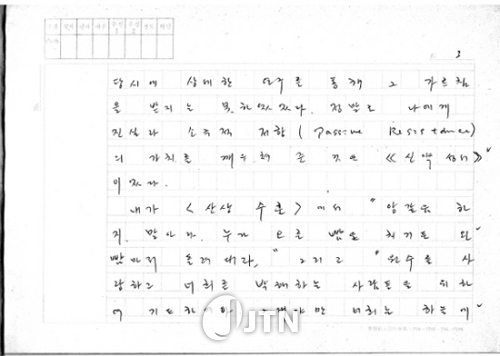 3
당시에 상세한 연구를 통해 그 가르침
을 받지는 못하였었다. 정말로 나에게
진실과 소극적 저항 (Passive Resistance)
의 가치를 깨우쳐 준 것은 《신약성서》
이었다.
내가 〈산상 수훈〉에서 "앙갚음 하
지 말아라. 누가 오른 뺨을 치거든 왼
뺨마저 돌려 대라." 그리고 "원수를 사
랑하고 너희를 박해하는 사람들을 위하
여 기도하여라 그래야만 너희는 하늘에
JTN